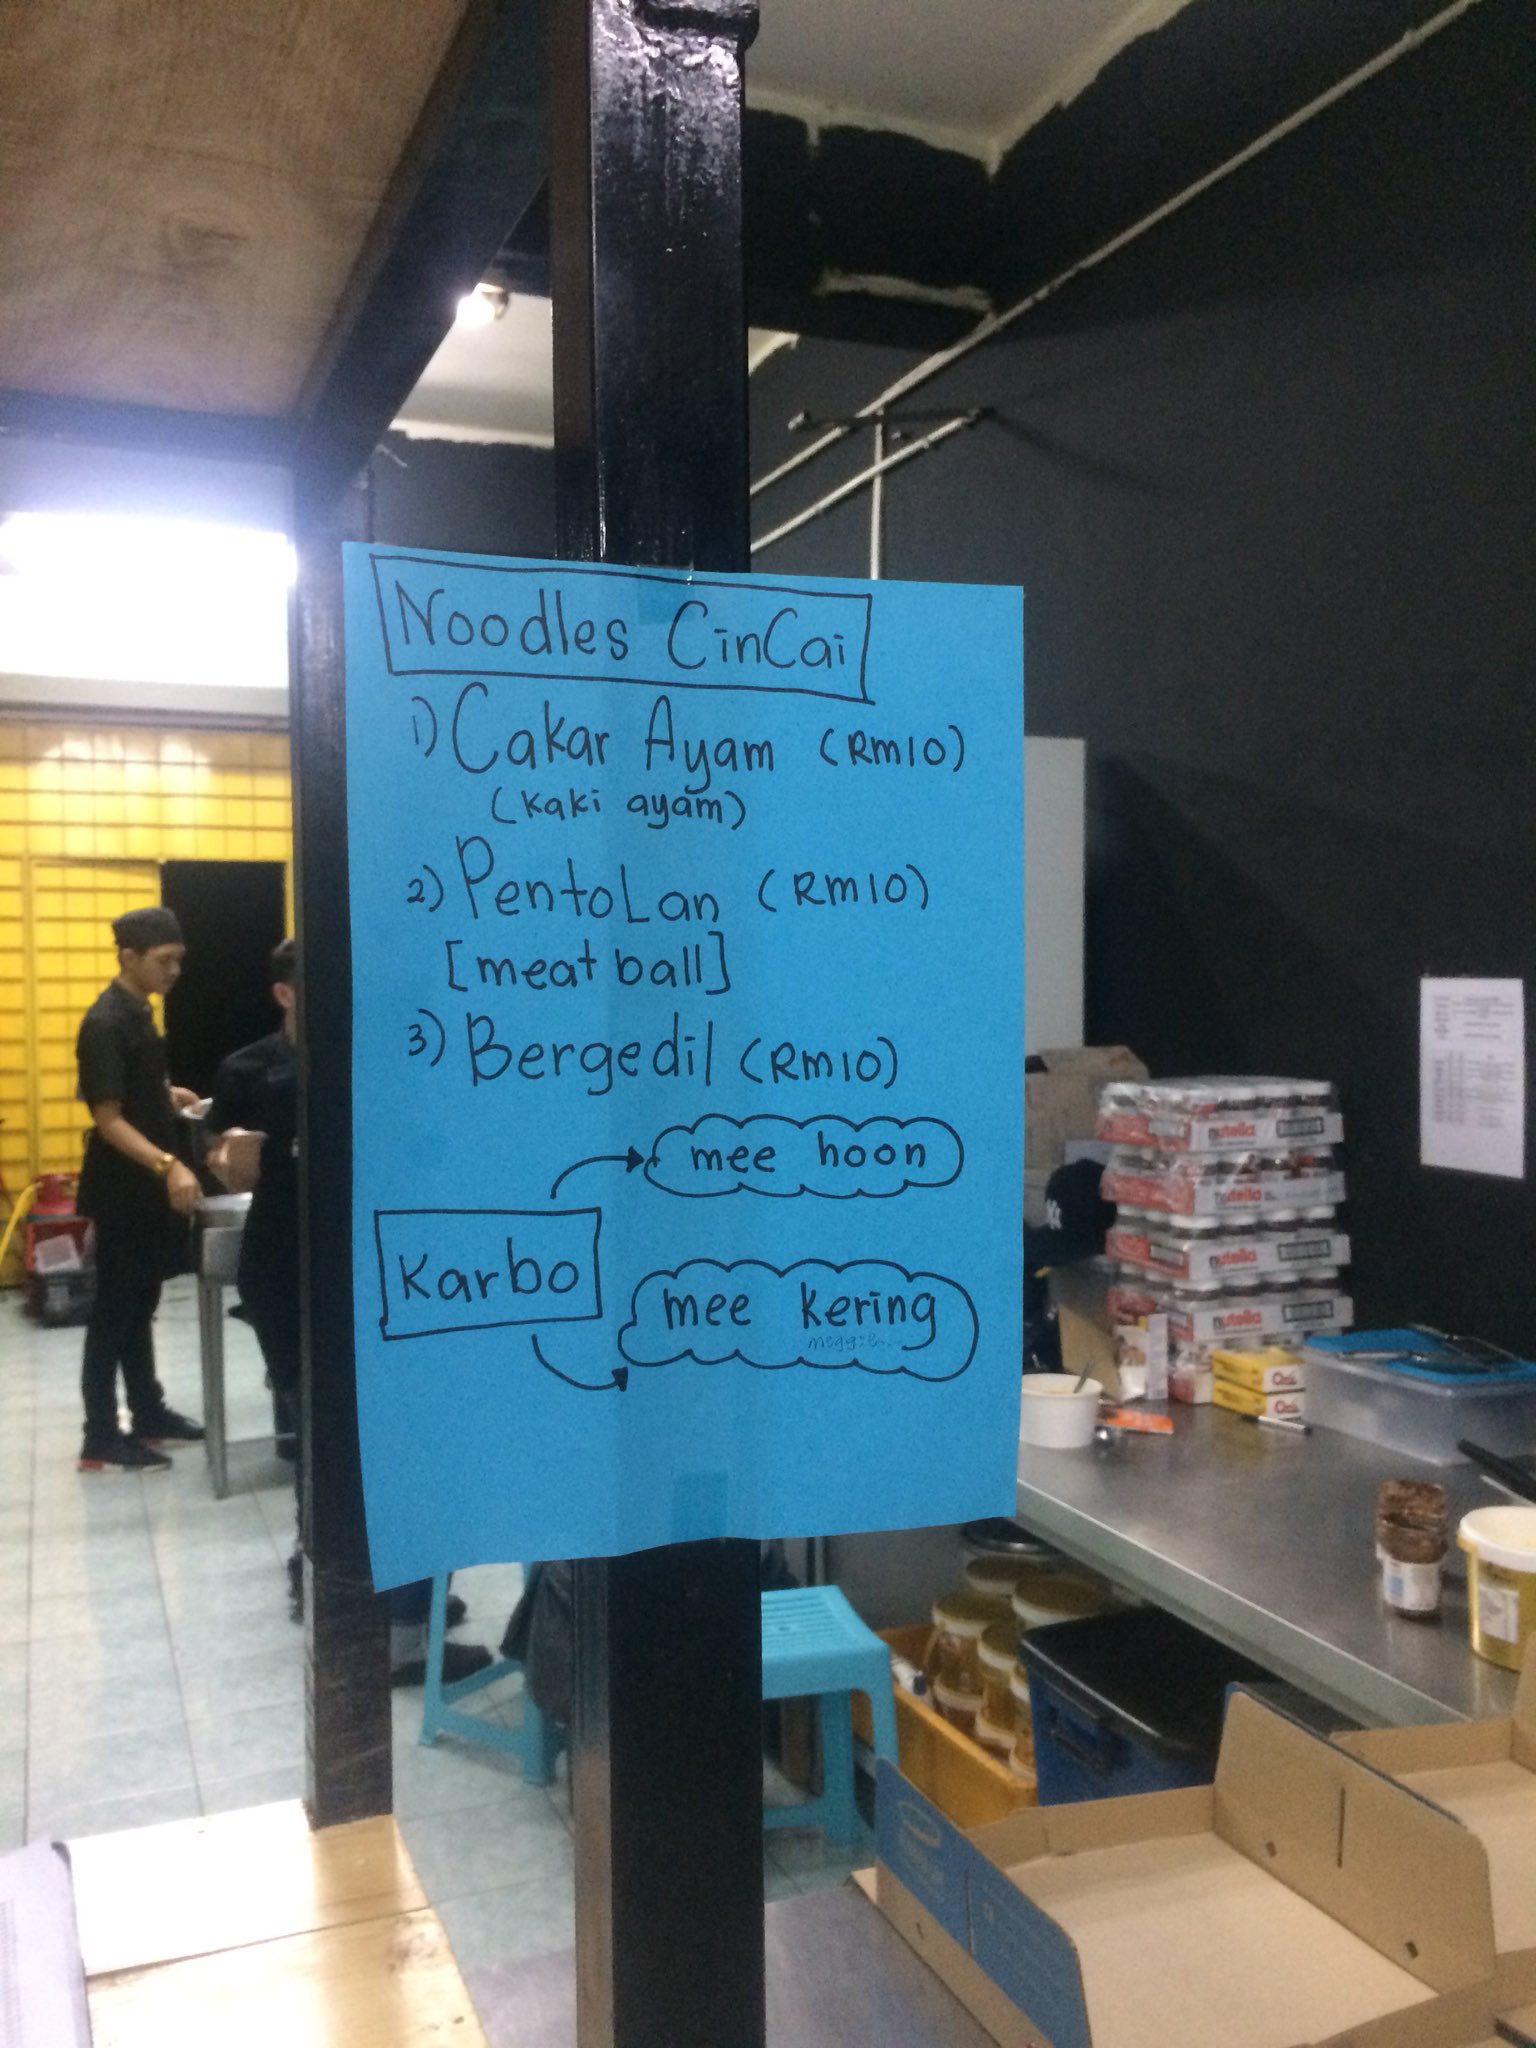 Noodles CinCai
1) Cakar Ayam (RM10)
(kaki ayam)
2) PentoLan (RM10)
[meat ball]
3) Bergedil (RM10)
mee hoon
Karbo
mee kering
nutella
nutella
nutella
nutella